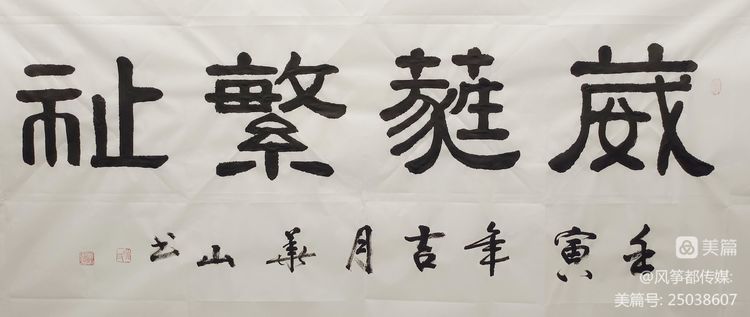 葳蕤繁祉
壬寅年吉月華山书
美篇
@风筝都传媒:
美篇号: 25038607